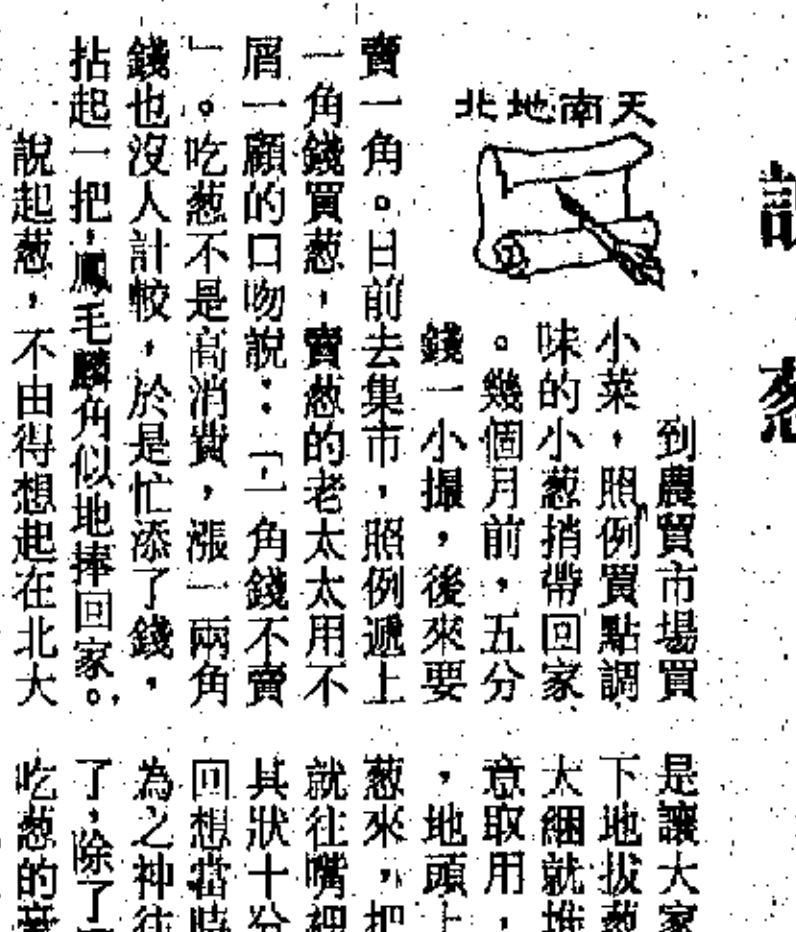 天南地北
到農貿市場買
小菜，照例買點調
味的小葱捎帶回家
。幾個月前，五分
錢一小撮，後來要
賣一角。日前去集市，照例遞上
一角錢買葱，賣葱的老太太用不
屑一顧的口吻說：「一角錢不賣
」。吃葱不是高消費，漲一兩角
錢也沒人計較，於是忙添了錢，
拈起一把，鳳毛麟角似地捧回家。
說起葱，不由得想起在北大
是讓大家
下地拔葱
大綑就堆
意取用，
，地頭上
葱來，把
就往嘴裡
其狀十分
回想當時
為之神往
了，除了
吃葱的